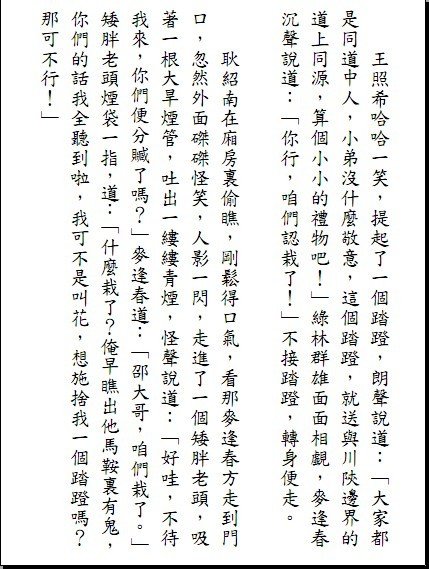 王照希哈哈一笑，提起了一個踏蹬，朗聲說道：「大家都
是同道中人，小弟沒什麼敬意，這個踏蹬，就送與川陝邊界的
道上同源，算個小小的禮物吧！」綠林群雄面面相覷，麥逢春
沉聲說道：「你行，咱們認栽了！」不接踏蹬，轉身便走。
耿紹南在廂房裏偷瞧，剛鬆得口氣，看那麥逢春方走到門
口，忽然外面磔磔怪笑，人影一閃，走進了一個矮胖老頭，吸
著一根大旱煙管，吐出一縷縷青煙，怪聲說道：「好哇，不待
我來，你們便分贓了嗎？」麥逢春道：「邵大哥，咱們栽了。」
矮胖老頭煙袋一指，道：「什麼栽了？俺早瞧出他馬鞍裏有鬼，
你們的話我全聽到啦，我可不是叫花，想施捨我一個踏蹬嗎？
那可不行！」